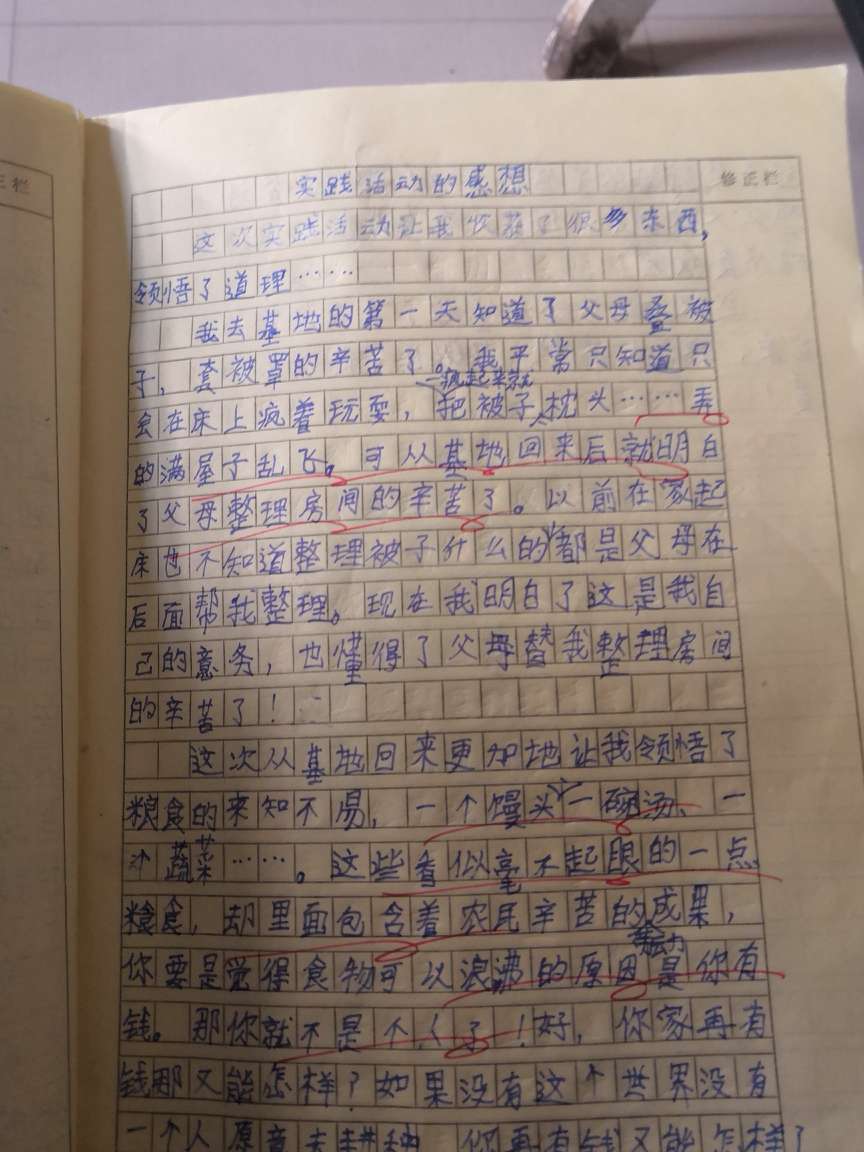 正栏
修正栏
实践活动的感想
这次实践活动让我收获了很多东西，
领悟了道理……
我去基地的第一天知道了父母叠被
子，套被罩的辛苦了。我平常只知道只
一疯起来就
会在床上疯着玩耍，把被子、枕头……弄
的满屋子乱飞。可从基地回来后就明白
了父母整理房间的辛苦了。以前在家起
床也不知道整理被子什么的，都是父母在
后面帮我整理。现在我明白了这是我自
己的意务，也懂得了父母替我整理房间
的辛苦了！
这次从基地回来更加地让我领悟了
粮食的来知不易，一个馒头、一碗汤、一
个蔬菜……。这些看似毫不起眼的一点
粮食，却里面包含着农民辛苦的成果，
你要是觉得食物可以浪沸的原因是你有
钱。那你就不是个人了！好，你家再有
钱那又能怎样？如果没有这个世界没有
一个人愿意去耕种，你再有钱又能怎样？